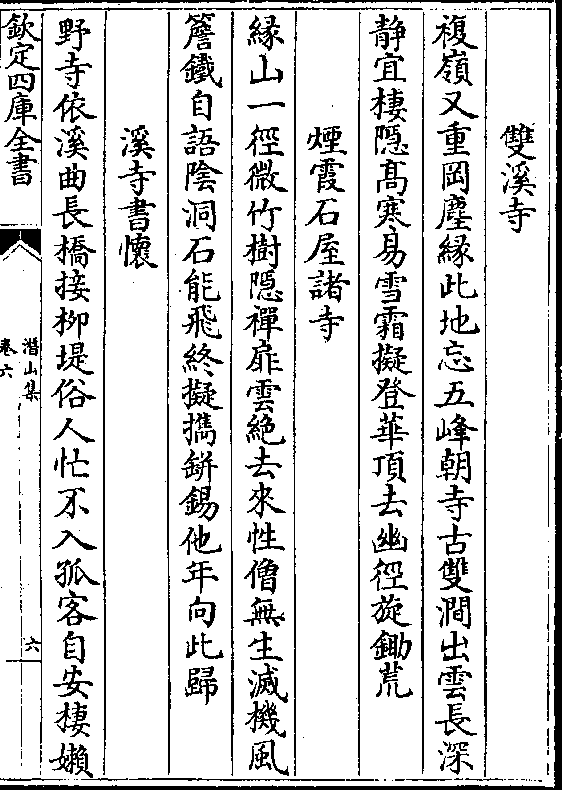 雙溪寺
複嶺又重岡塵緣此地忘五峰朝寺古雙澗出雲長深
静宜棲隠髙寒易雪霜擬登華頂去幽徑旋鋤荒
煙霞石屋諸寺
緣山一徑微竹樹隠禪扉雲絶去來性僧無生滅機風
簷鐵自語陰洞石能飛終擬攜缾錫他年向此歸
溪寺書懷
野寺依溪曲長橋接栁堤俗人忙不入孤客自安棲嬾
欽定四庫全書
潛山集
卷六
六